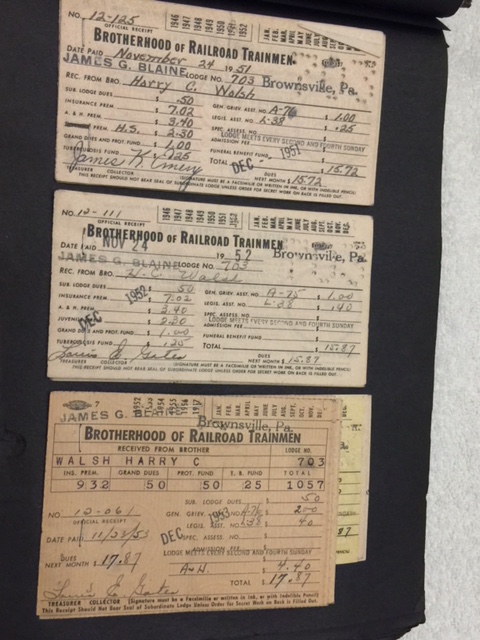 NO. 12-125
OFFICIAL RECEIPT
1946 1947 1948 1949 1950 1951 1952
JAN. FEB. MAR. APRIL MAY JUNE JULY AUG. SEPT. OCT. NOV. DEC.
BROTHERHOOD OF RAILROAD TRAINMEN
DATE PAID November 24 1951
JAMES G. BLAINE LODGE NO. 703 Brownsville, Pa.
REC. FROM BRO. Harry C. Walsh
SUB. LODGE DUES $ .50 GEN. GRIEV. ASST. NO. A-76 $ 1.00
INSURANCE PREM. 7.02 LEGIS. ASST. NO. L-38 .25
A. & H. PREM. 3.40 SPEC. ASSESS. NO.
PREM. H.S. 2.30 LODGE MEETS EVERY SECOND AND FOURTH SUNDAY
ADMISSION FEE
GRAND DUES AND PROT. FUND 1.00 FUNERAL BENEFIT FUND
TUBERCULOSIS FUND .25 TOTAL $ 15.72
DEC 1951
DUES NEXT MONTH $ 15.72
James K Emery
COLLECTOR (SIGNATURE MUST BE A FACSIMILE OR WRITTEN IN INK, OR WITH INDELIBLE PENCIL)
THIS RECEIPT SHOULD NOT BEAR SEAL OF SUBORDINATE LODGE UNLESS FOR SECRET WORK ON BACK IS FILLED OUT.
NO. 12-111
OFFICIAL RECEIPT
1946 1947 1948 1949 1950 1951 1952
JAN. FEB. MAR. APRIL MAY JUNE JULY AUG. SEPT. OCT. NOV. DEC.
BROTHERHOOD OF RAILROAD TRAINMEN
DATE PAID NOV 24 1952
JAMES G. BLAINE LODGE NO. 703 Brownsville, Pa.
REC. FROM BRO. H. C. Walsh
SUB. LODGE DUES $ 50 GEN. GRIEV. ASST. NO. A-75 $ 1.00
INSURANCE PREM. 7.02 LEGIS. ASST. NO. L-38 .40
A. & H. PREM. 3.40 SPEC. ASSESS. NO.
LODGE MEETS EVERY SECOND AND FOURTH SUNDAY
ADMISSION FEE
GRAND DUES & PROT. FUND 1.00 FUNERAL BENEFIT FUND
TUBERCULOSIS FUND .25 TOTAL $ 15.87
DEC 1952
DUES NEXT MONTH $ 15.87
Louis E Gates
TREASURER COLLECTOR (SIGNATURE MUST BE A FACSIMILE OR WRITTEN IN INK, OR WITH INDELIBLE PENCIL)
THIS RECEIPT SHOULD NOT BEAR SEAL OF SUBORDINATE LODGE UNLESS FOR SECRET WORK ON BACK IS FILLED OUT.
7
1952 1953 1954 1955 1956 1957
JAN. FEB. MAR. APRIL MAY JUNE JULY AUG. SEPT. OCT. NOV. DEC.
JAMES G.
Brownsville, Pa.
BROTHERHOOD OF RAILROAD TRAINMEN
RECEIVED FROM BROTHER LODGE NO.
WALSH HARRY C 703
INS. PREM. GRAND DUES PROT. FUND T. B. FUND TOTAL
9 32 50 50 25 10 57
SUB. LODGE DUES $ .50
NO. 12-061 GEN. GRIEV. ASST. NO. A-76 2.00
OFFICIAL RECEIPT LEGIS. ASST. NO. L-38 40
DATE PAID 11/23/53 SPEC. ASSESS. NO.
DEC 1953
ADMISSION FEE
LODGE MEETS EVERY SECOND AND FOURTH SUNDAY
DUES NEXT MONTH $ 17.87
A&H. 4.40
TOTAL $ 17.87
Louis E. Gates
TREASURER COLLECTOR (Signature must be a Facsimile or written in Ink, or with Indelible Pencil)
This Receipt Should Not Bear Seal of Subordinate Lodge Unless for Secret Work on Back is Filled Out.